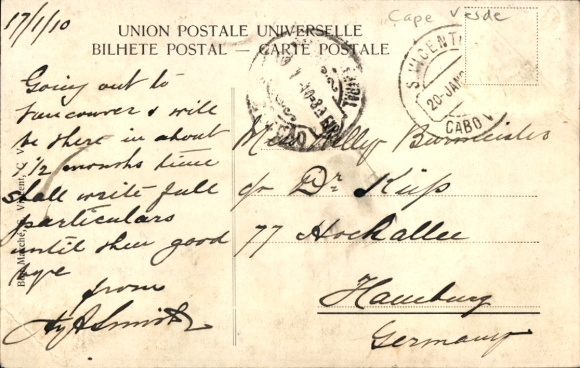 17/1/10
Cape Verde
UNION POSTALE UNIVERSELLE
BILHETE POSTAL — CARTE POSTALE
S. VICENTE
20-JAN
CABO V
Going out to
Vancouver & will
be there in about
1 1/2 months time
shall write full
particulars
until then good
bye
from
Smith
Burmeister
c/o Dr. Küp
77 Hochallee
Hamburg
Germany
Bon Marché, S. Vincent, C. V.